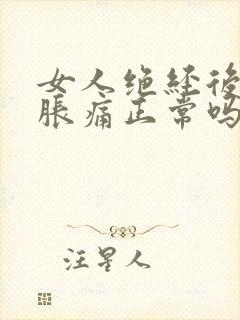 女人绝经後
脹痛正常吗
汪星人